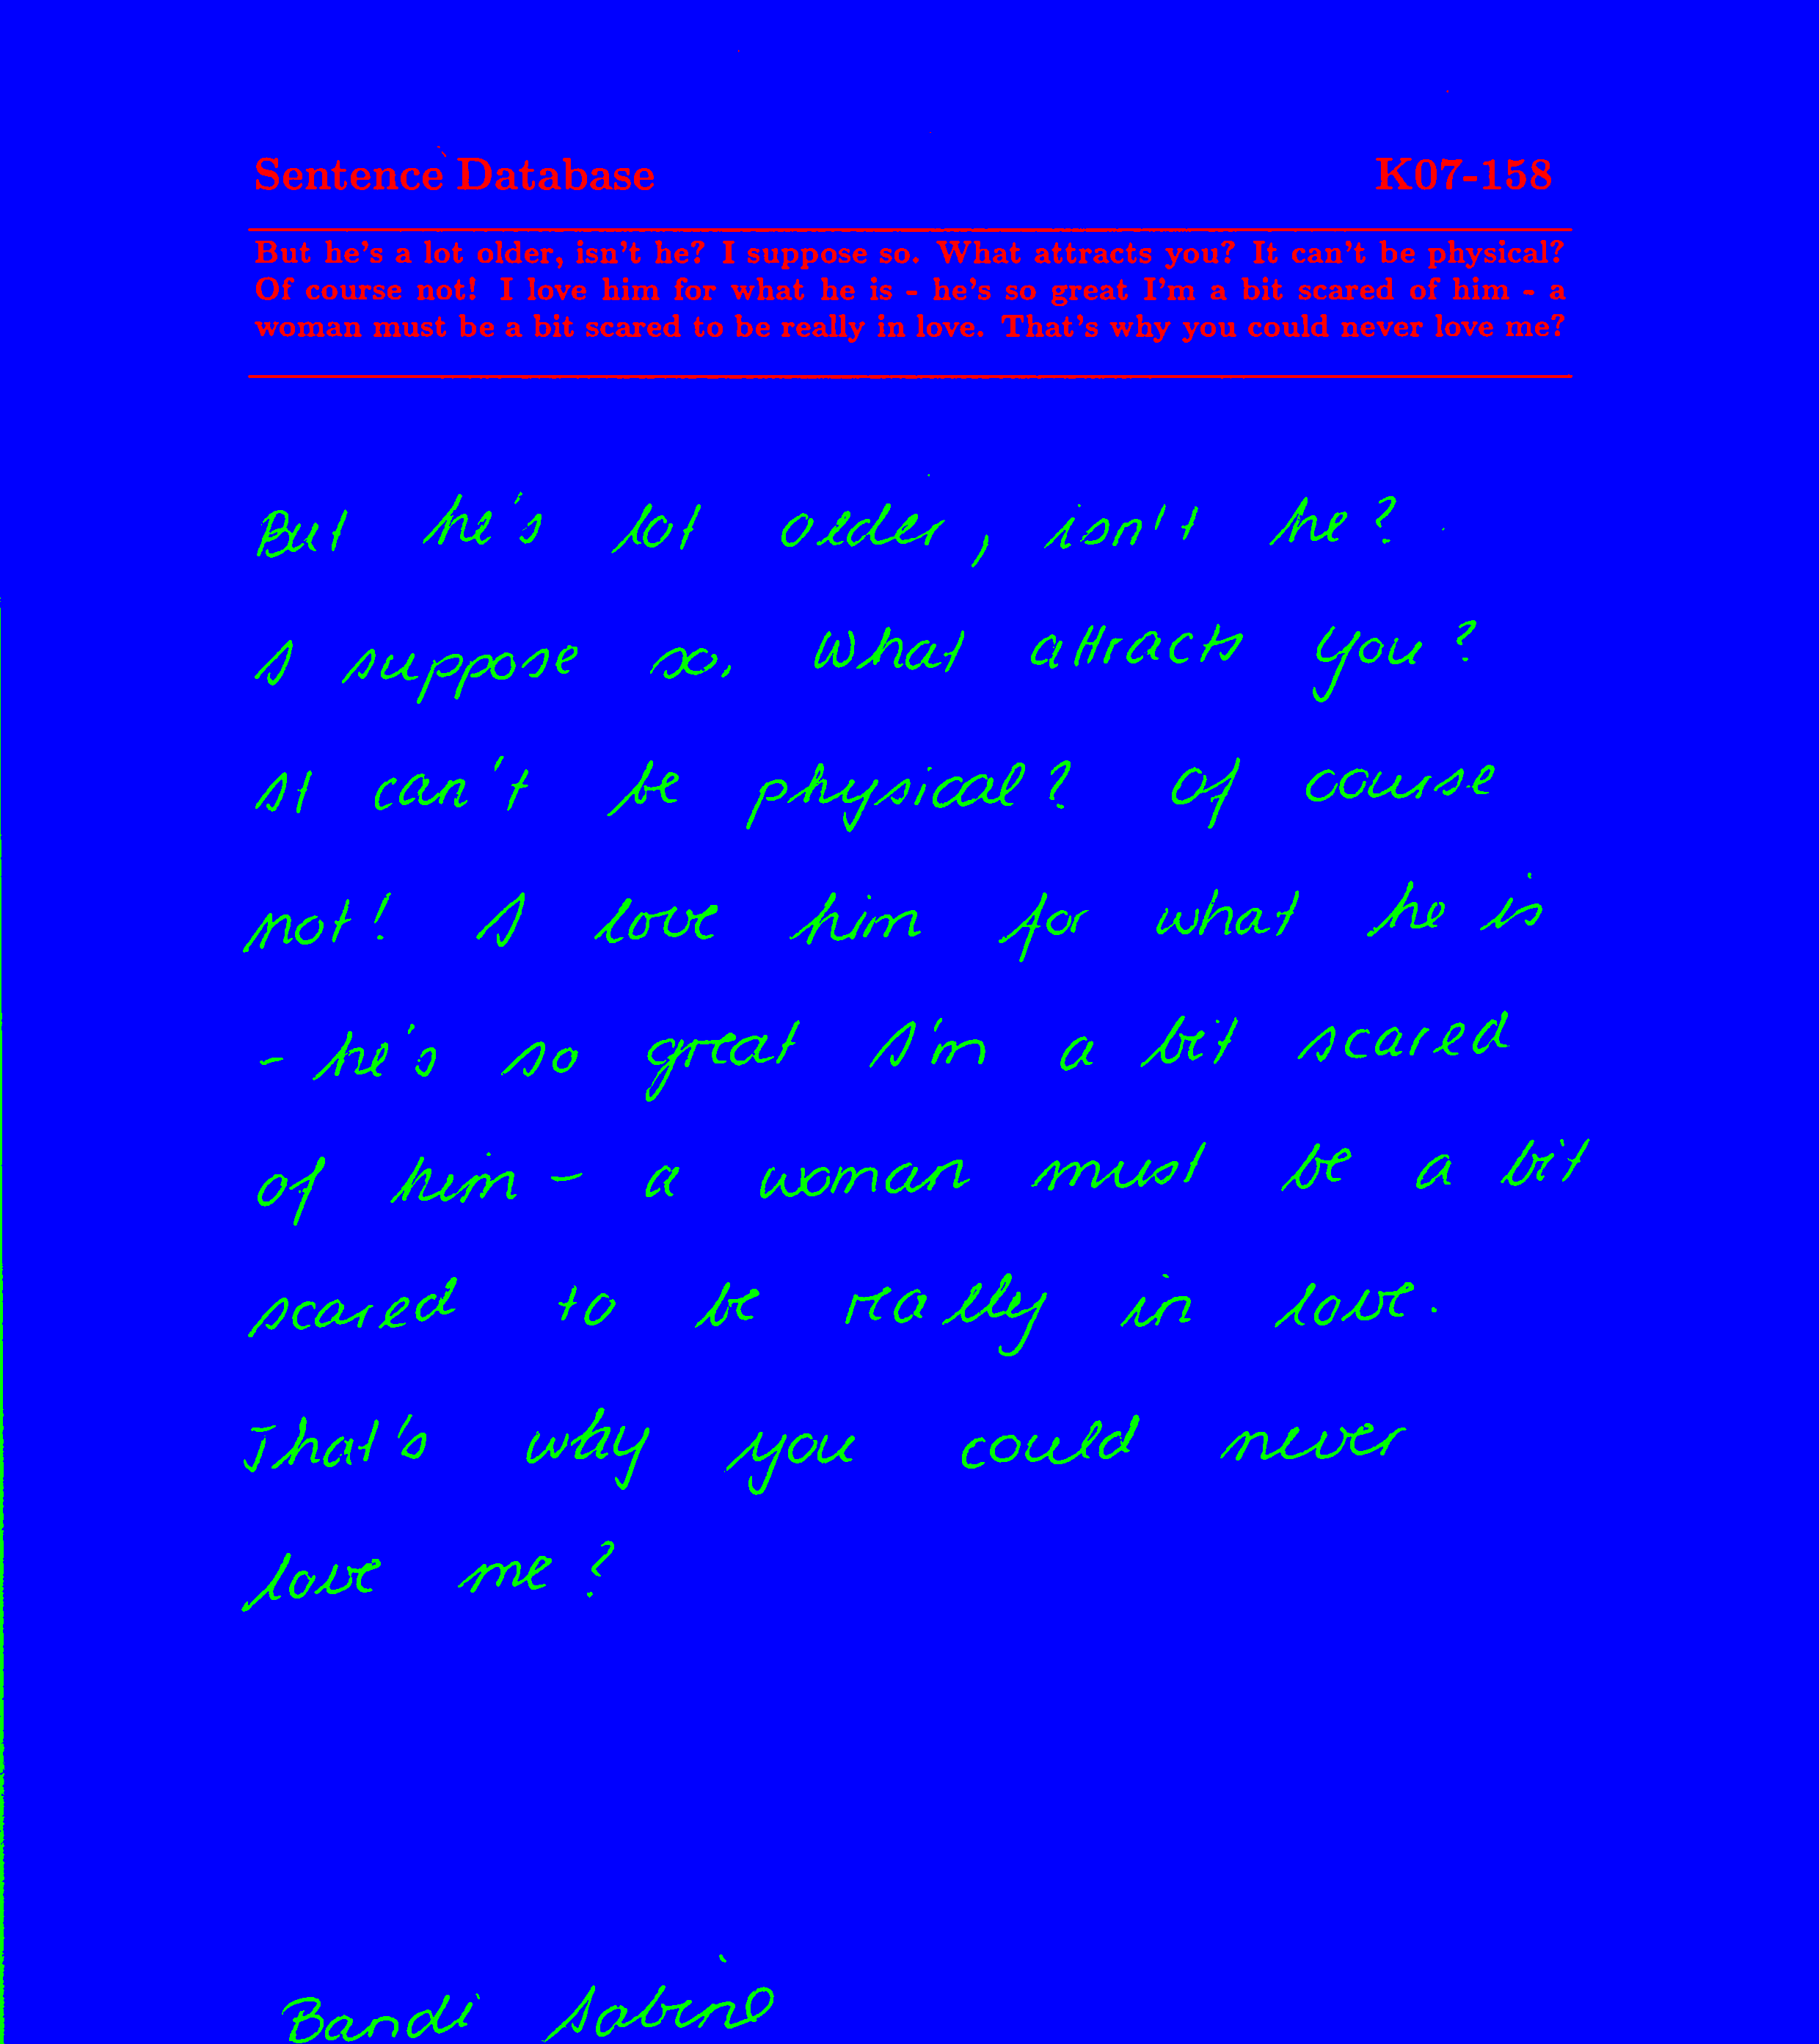 Sentence Database K07-158
But he's a lot older, isn't he? I suppose so. What attracts you? It can't be physical?
Of course not! I love him for what he is - he's so great I'm a bit scared of him - a
woman must be a bit scared to be really in love. That's why you could never love me?
But he's lot older, isn't he?
I suppose so. What attracts you?
It can't be physical? Of course
not! I love him for what he is
- he's so great I'm a bit scared
of him - a woman must be a bit
scared to be really in love.
That's why you could never
love me?
Bandi Sabine